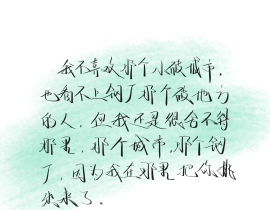 我不喜欢那个小破城市,
也看不上钢厂那个破地方
的人,但我还是很舍不得
那里,那个城市,那个钢
厂,因为我在那里把你挑
出来了。